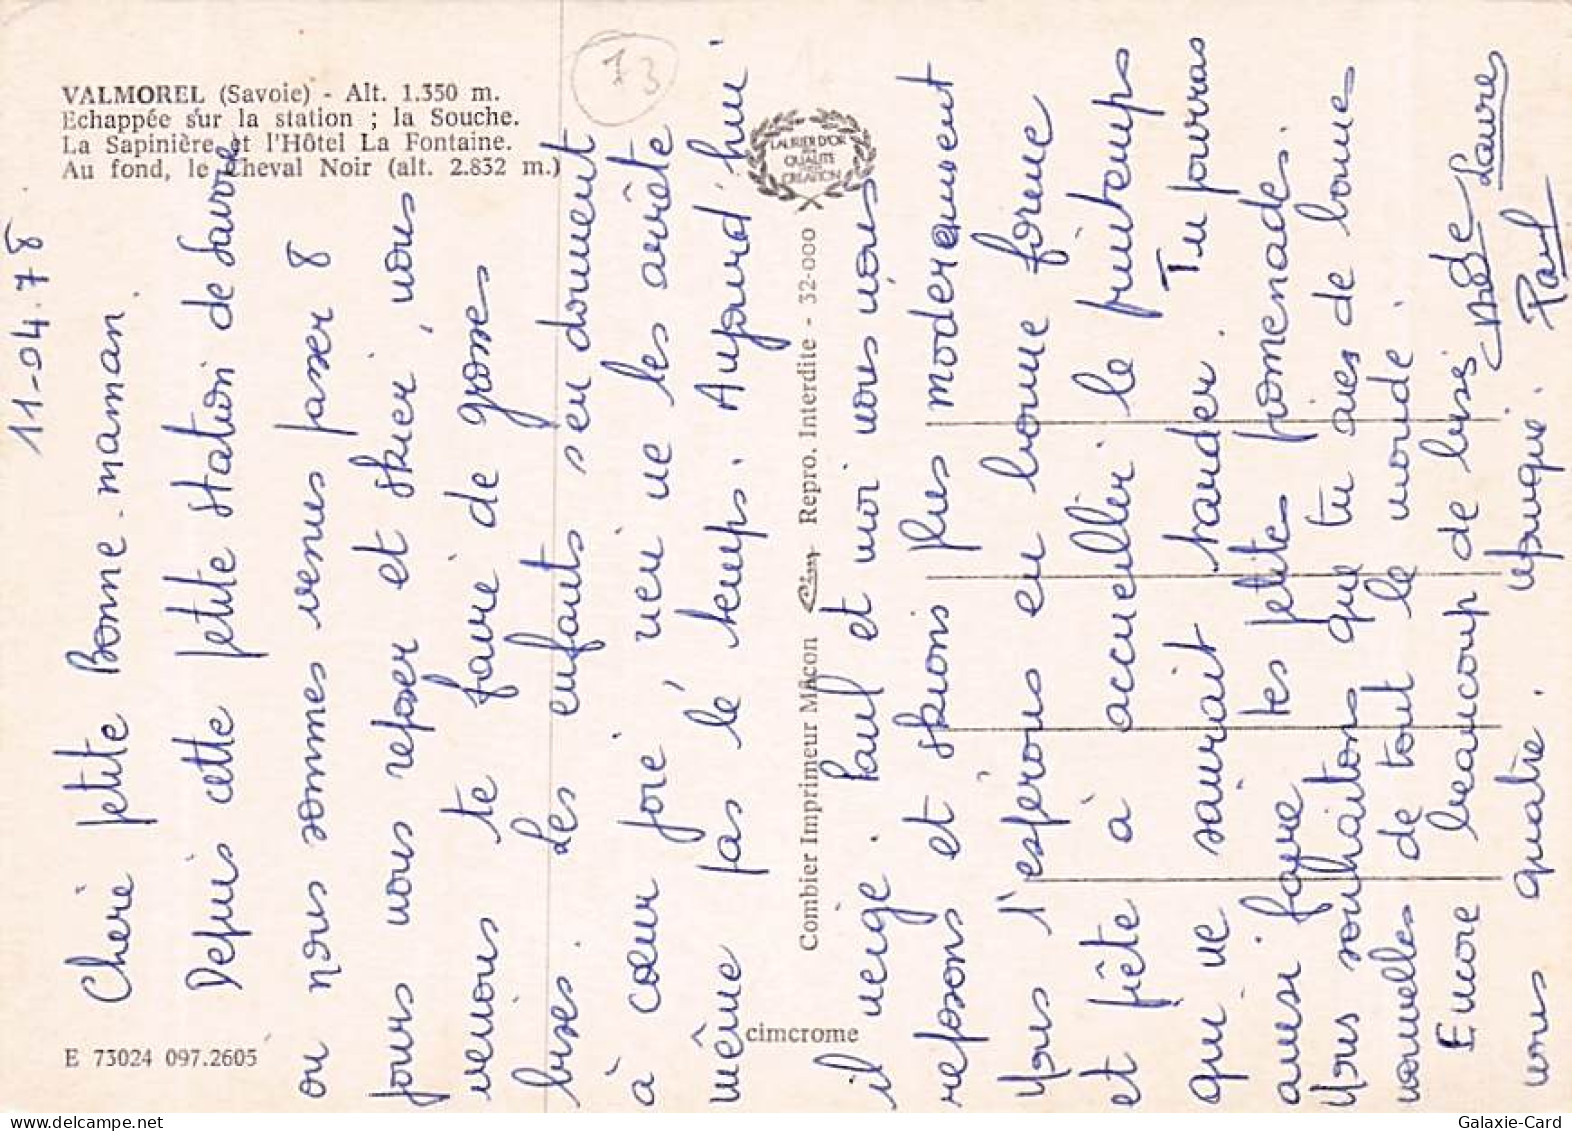 VALMOREL (Savoie) - Alt. 1.350 m.
Echappée sur la station ; la Souche.
La Sapinière et l'Hôtel La Fontaine.
Au fond, le Cheval Noir (alt. 2.832 m.)
73
LAURIER D'OR
DE LA
QUALITE
CREATION
Combier Imprimeur Mâcon Cim Repro. Interdite - 32-000
cimcrome
E 73024 097.2605
11-04.78
Cheri petite Bonne-maman.
Depuis cette petite station de Savoie
ou nous sommes venus passer 8
jours nous reposer et skier, nous
venons te faire de grosses
bises. Les enfants s'en donnent
à cœur joie rien ne les arrête
même pas le temps. Aujourd'hui
il neige. Paul et moi nous nous
reposons et skions plus moderement
Nous t'esperons en bonne forme
et prête à accueillir le printemps
qui ne saurait tarder. Tu pourras
ainsi faire tes petites promenades.
Nous souhaitons que tu aies de bonnes
nouvelles de tout le monde.
Encore beaucoup de bises
nous quatre.
Laure
Paul
Galaxie-Card